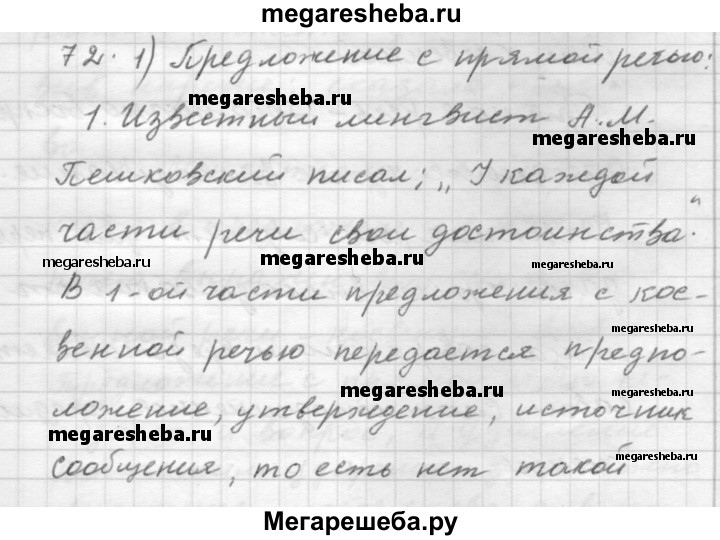 megaresheba.ru
72. 1) Предложение с прямой речью:
megaresheba.ru
1. Известный лингвист А.М.
megaresheba.ru
Пешковский писал; „У каждой
части речи свои достоинства.“
megaresheba.ru megaresheba.ru megaresheba.ru
В 1-ой части предложения с кос-
megaresheba.ru
венной речью передается предпо-
megaresheba.ru
ложение, утверждение, источник
megaresheba.ru
сообщения, то есть нет такой
megaresheba.ru
Мегарешеба.ру